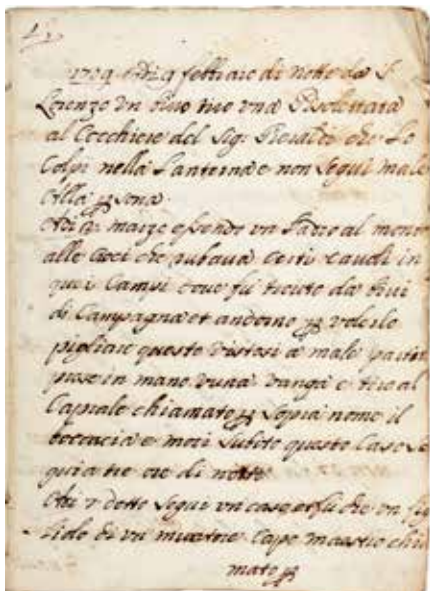 1729 Adi 9 febbraio di notte da S.
Lorenzo un sbiro tirò una Pistolettata
al Cocchiere del Sig: che Lo
Colpì nella Lanterna e non seguì male
alla persona
Adi marzo essendo un Ladro al monte
alle Croci che rubava certi Cavoli in
quei Campi dove fù trovato da
di Campagna et andorno per volerlo
pigliare questo vistosi a male partito
prese in mano una vanga e tirò al
Caporale chiamato per sopra nome il
e morì subito questo Caso se
guì a tre ore di notte
Adi detto seguì un caso et fù che un fig
liolo di un muratore Capo maestro chia
mato per